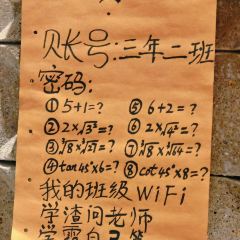 账号:三年二班
密码:
①5+1=? ⑤6+2=?
②2×√3²=? ⑥2×√4²=?
③ ⑦
④tan45°×6=? ⑧cot45°×8=?
我的班级WiFi
学渣问老师
学霸自己算